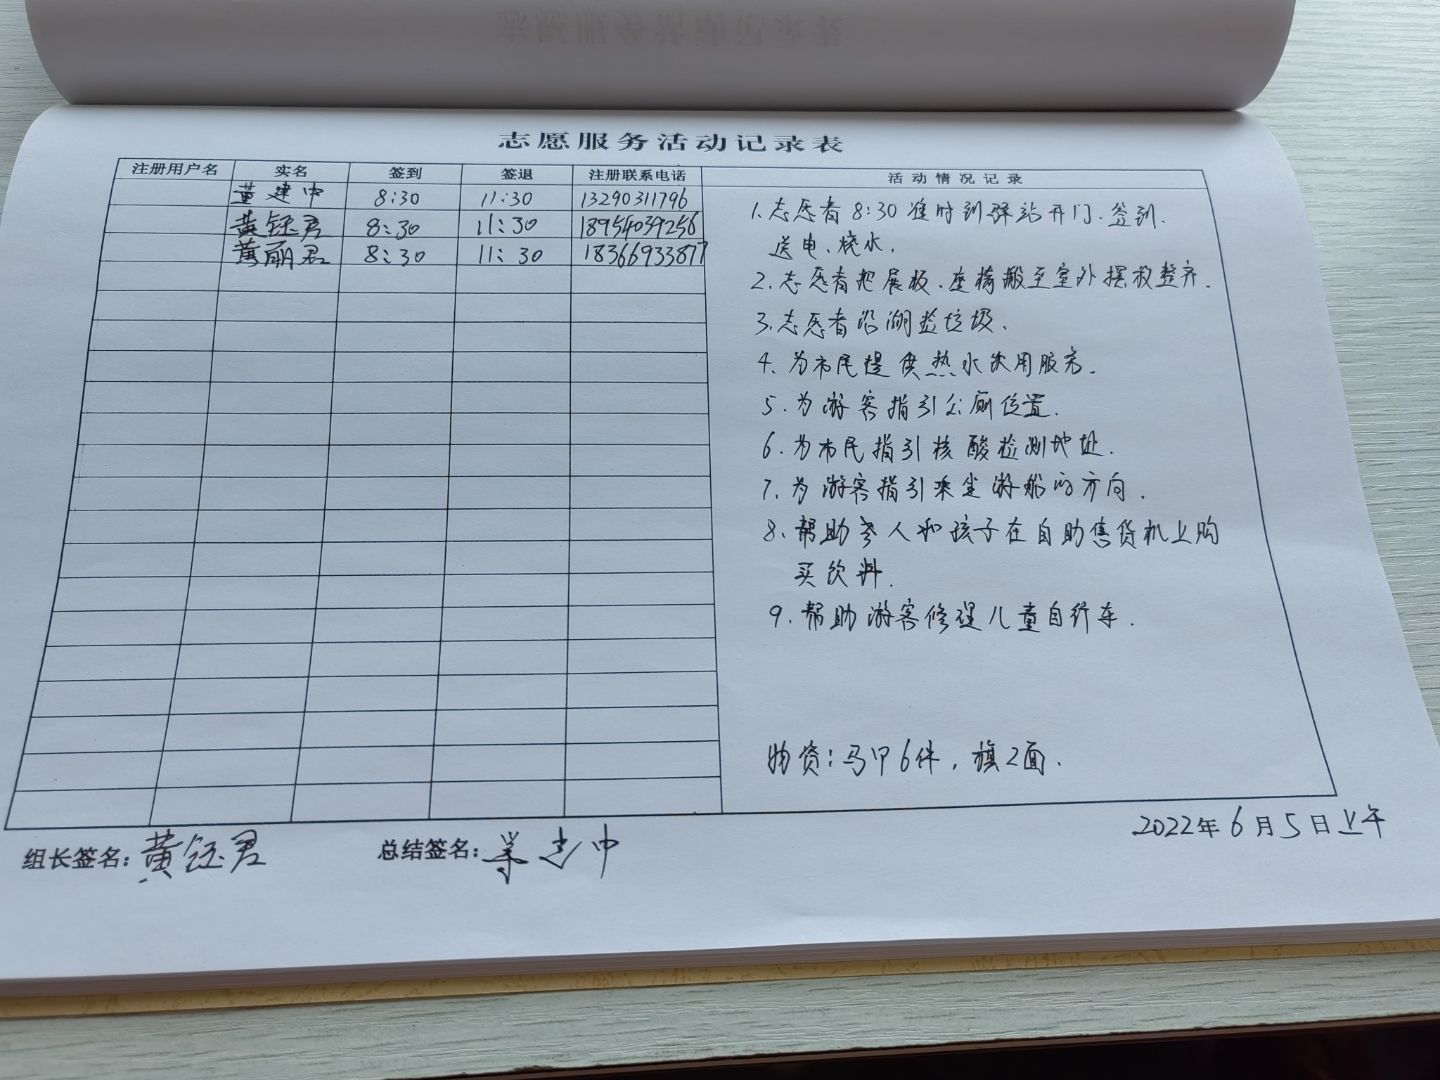 志愿服务活动记录表
注册用户名 实名 签到 签退 注册联系电话 活动情况记录
董建中 8:30 11:30 13290311796
黄钰君 8:30 11:30 18954039256
黄丽君 8:30 11:30 18366933877
1.志愿者8:30准时到驿站开门、签到、
送电、烧水.
2.志愿者把展板、座椅搬至室外摆放整齐.
3.志愿者沿湖捡垃圾.
4.为市民提供热水饮用服务.
5.为游客指引公厕位置.
6.为市民指引核酸检测地址.
7.为游客指引乘坐游船的方向.
8.帮助老人和孩子在自助售货机上购
买饮料.
9.帮助游客修理儿童自行车.
物资:马甲6件,旗2面.
2022年6月5日上午
组长签名:黄钰君 总结签名:董建中